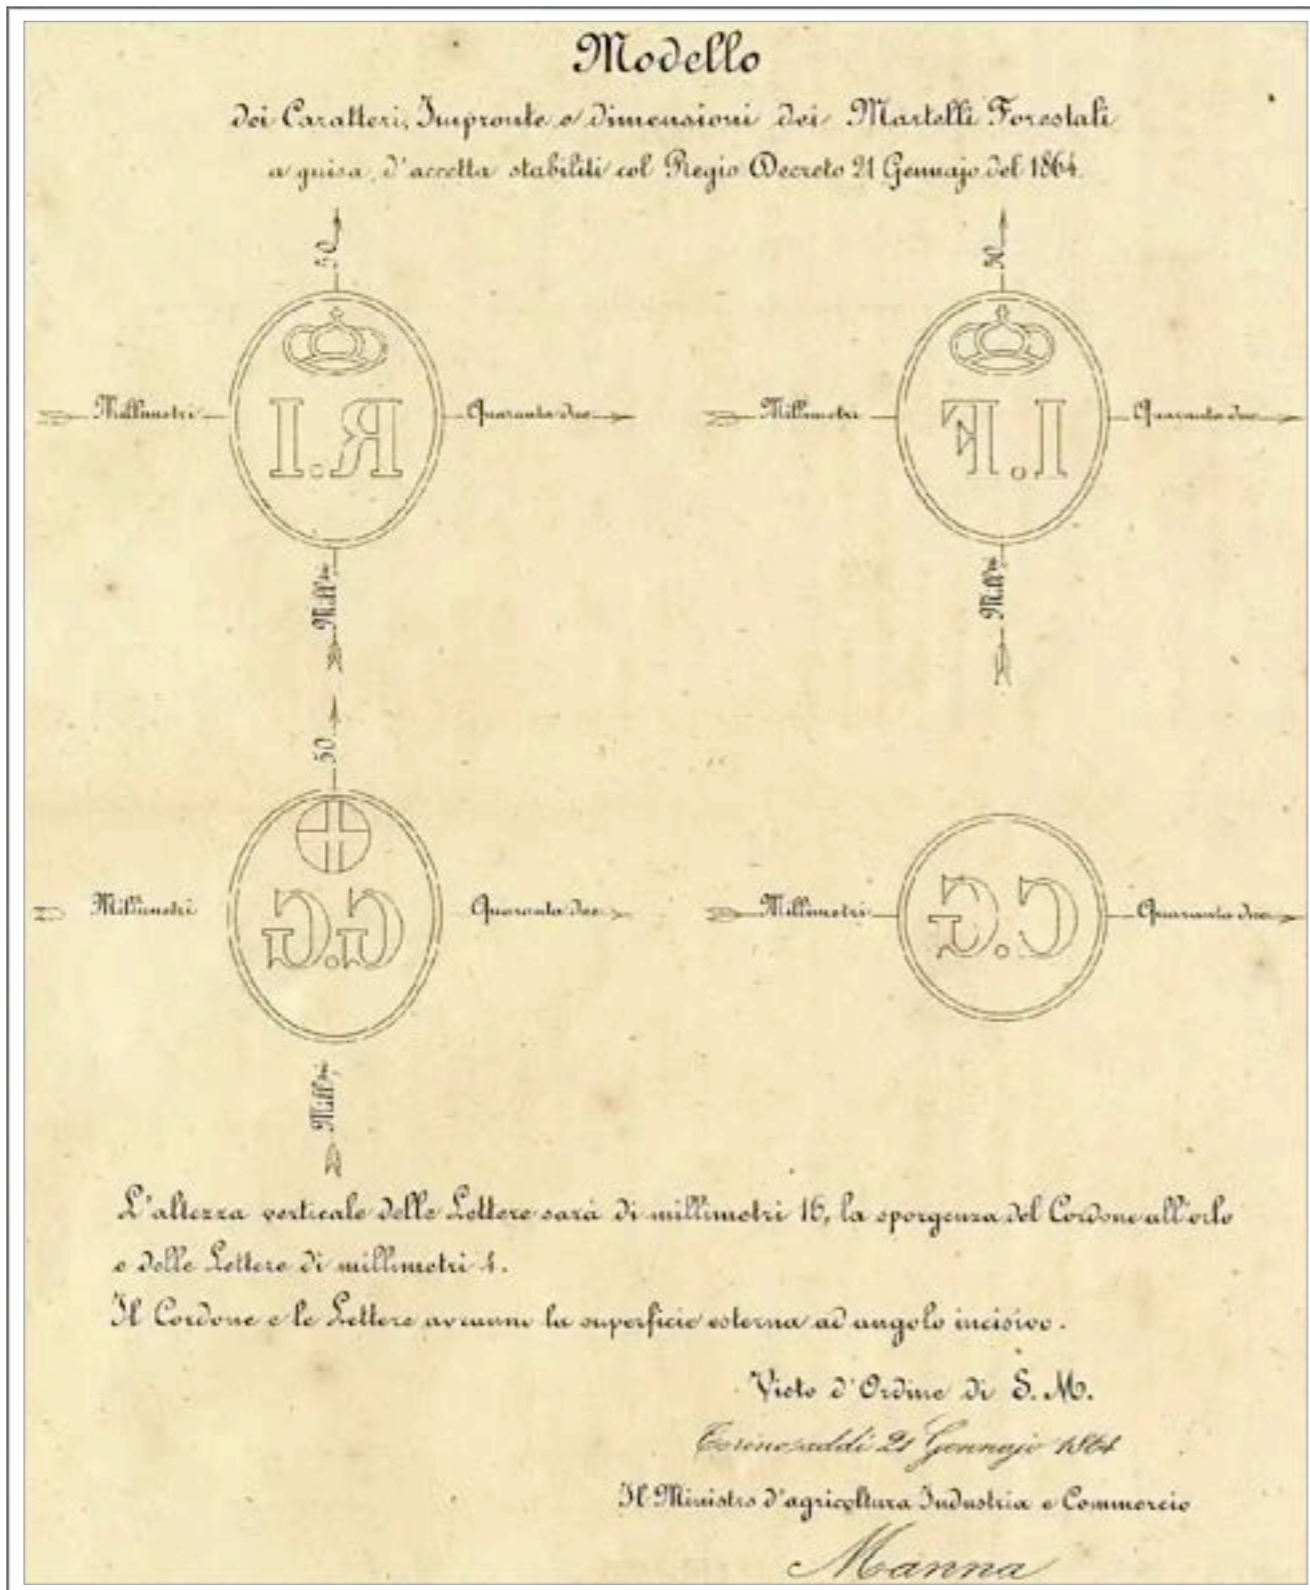 Modello
dei Caratteri, Impronte e dimensioni dei Martelli Forestali
a guisa d'accetta stabiliti col Regio Decreto 21 Gennajo del 1864.
50 50
Millimetri Quaranta due Millimetri Quaranta due
R.I I.F
Mill.ri Mill.ri
50
Millimetri Quaranta due Millimetri Quaranta due
G.G C.G
Mill.ri
L'altezza verticale delle Lettere sarà di millimetri 16, la sporgenza del Cordone all'orlo
e delle Lettere di millimetri 4.
Il Cordone e le Lettere avranno la superficie esterna ad angolo incisivo.
Visto d'Ordine di S. M.
Torino, addì 21 Gennajo 1864
Il Ministro d'agricoltura Industria e Commercio
Manna